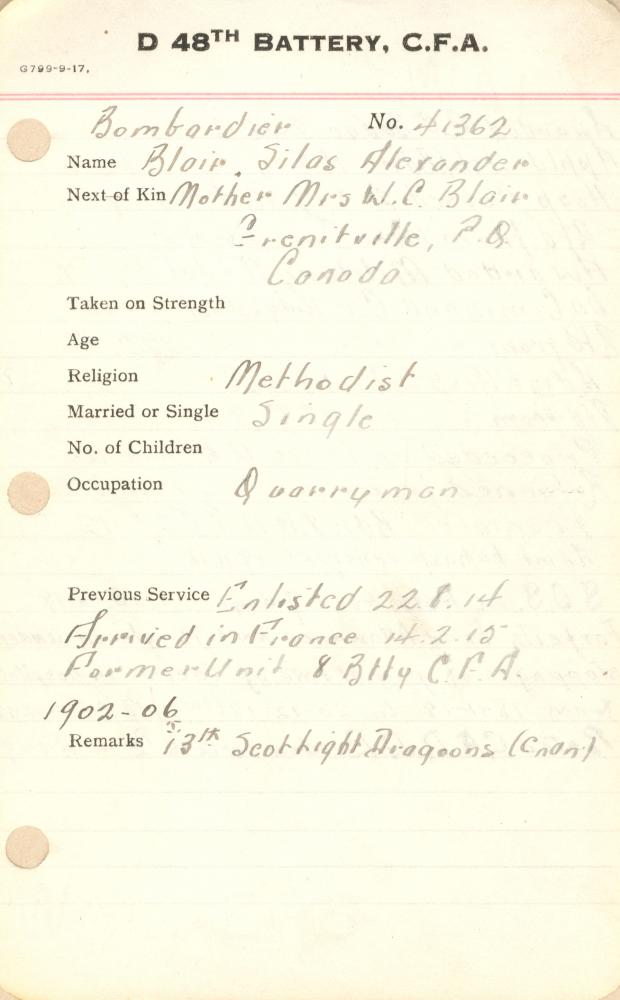 D 48TH BATTERY, C.F.A.
G799-9-17,
Bombardier No. 41362
Name Blair, Silas Alexander
Next of Kin Mother Mrs W.C. Blair
P.Q
Canada
Taken on Strength
Age
Religion Methodist
Married or Single Single
No. of Children
Occupation Quarryman
Previous Service Enlisted 22.8.14
Arrived in France 14.2.15
Former Unit 8 Btty C.F.A.
1902-06
Remarks 13th Scot Light Dragoons (Cnan)